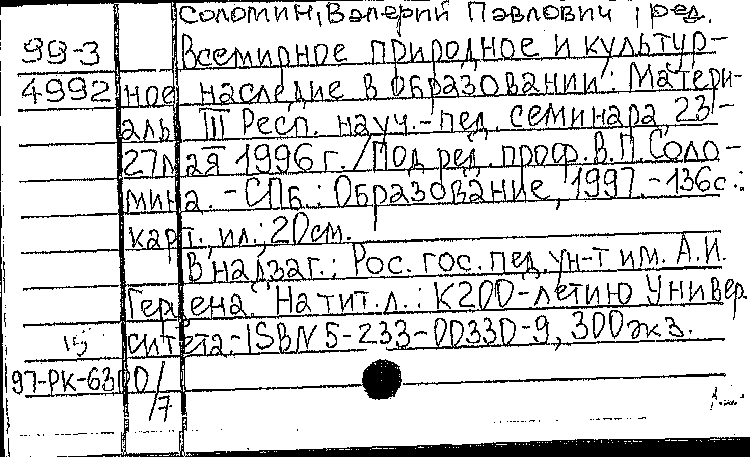 Соломин, Валерий Павлович, ред.
99-3 Всемирное природное и культур-
4992 ное наследие в образовании: Матери-
алы III Респ. науч.-пед. семинара, 23-
27 мая 1996 г. / Под ред. проф. В.П. Соло-
мина. - СПб.: Образование, 1997. - 136с.:
карт., ил.; 20см.
В надзаг.: Рос. гос. пед. ун-т им. А.И.
Герцена. На тит. л.: К 200-летию Универ-
15 ситета. - ISBN 5-233-00330-9, 300 экз.
97-РК-6300/
7